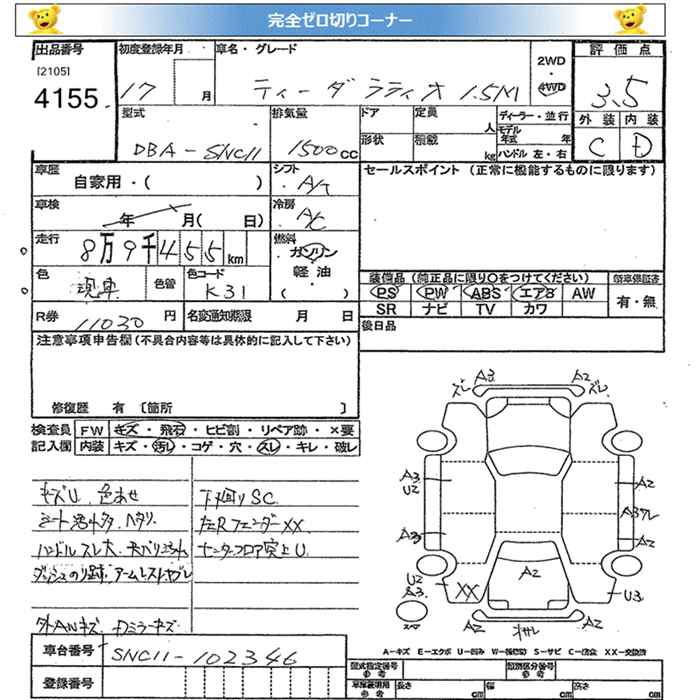 完全ゼロ切りコーナー
出品番号
[2105]
4155
初度登録年月
17 月
車名・グレード
ティーダ ラティオ 1.5M
2WD
・
4WD
評価点
3.5
外装 内装
C D
型式
DBA-SNC11
排気量
1500cc
ドア
定員
人
形状
積載
kg
ディーラー・並行
モデル年式 年
ハンドル 左・右
車歴
自家用・( )
シフト
A/T
セールスポイント (正常に機能するものに限ります)
車検
年 月( 日)
冷房
A/C
走行
8万9千455km
燃料
ガソリン
軽油
( )
色
現車
色替
色コード
K31
装備品 (純正品に限り○をつけてください)
新車保証書
PS PW ABS エアB AW
SR ナビ TV カワ
有・無
R券
11030円
名変通知期限 月 日
後日品
注意事項申告欄(不具合内容等は具体的に記入して下さい)
修復歴 有 [箇所 ]
検査員記入欄
FW キズ・飛石・ヒビ割・リペア跡・×要
内装 キズ・汚レ・コゲ・穴・スレ・キレ・破レ
キズU 色あせ
シート汚れ多 ヘタリ
ハンドルスレ大
ダッシュのり跡、アームレストヤブレ
外AWキズ ドミラーキズ
下回りSC
左Rフェンダー XX
センターフロア突上U
ズレ A3 A2 ズレ
A3
U2
A2
A3
A2
A2
U2
A3
XX
U3
A2
A2
スペア
A-キズ E-エクボ U-凹み W-補修跡 S-サビ C-腐食 XX-交換済
車台番号
SNC11-102346
登録番号
型式指定番号
参考
類別区分番号
参考
車検証明用
参考
長さ cm
幅 cm
高さ cm